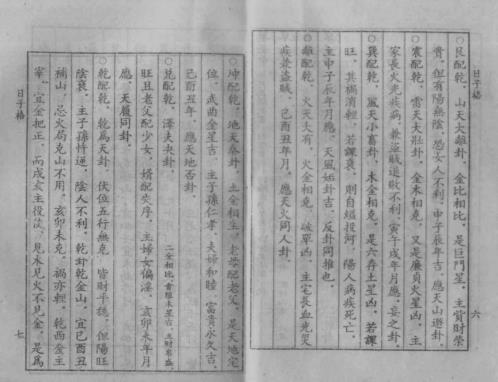 日子橋
六
○艮配乾、山天大離卦、金比相比、是巨門星、主賞財榮
貴、但有陽無陰、恐女人不利、申子辰年吉、應天山遯卦、
○震配乾、雷天大壯卦、金木相克、又是廉貞火星凶、主
家長火光疾病、兼盜賊退敗不利、寅午戌年月應、妄之卦、
○巽配乾、風天小畜卦、木金相克、是六存土星凶、若課
旺、其禍消輕、若課衰、則自縊投河、陽人病疾死亡、
主申子辰年月應、天風姤卦吉、反卦同推也、
○離配乾、火天大有、火金相克、破軍凶、主宅長血光災
疾兼盜賊、己酉丑年月、應天火同人卦、
○坤配乾、地天泰卦、土金相生、老母配老父、是天地定
位、武曲金星吉、主子孫仁孝、夫婦和睦、富貴永久吉、
己酉丑年、應天地否卦、
○兌配乾、澤天夬卦、二金相比
旺且老父配少女、婚配失序、主婦女偏淫、亥卯未年月
應、天履同卦、
○乾配乾、乾為天卦、伏位五行無克、皆財平穩、但陽旺
陰衰、主子孫悖逆、陰人不利、乾卦乾金山、宜己酉丑
補山、忌火局克山不用、亥卯未克、禍亦輕、乾西登主
宰、宜金把正、丙戌亥主役次、見水見火不見金、是為
日子橋
七